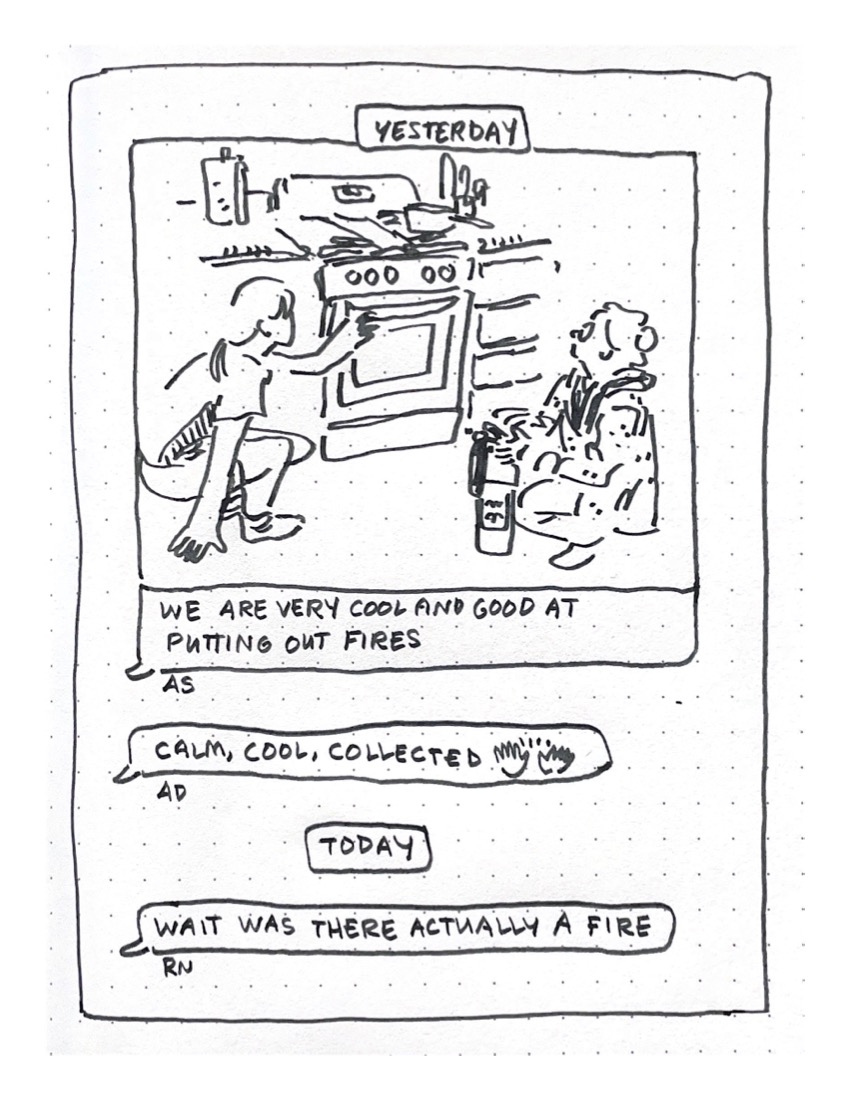 YESTERDAY
WE ARE VERY COOL AND GOOD AT
PUTTING OUT FIRES
AS
CALM, COOL, COLLECTED
AD
TODAY
WAIT WAS THERE ACTUALLY A FIRE
RN